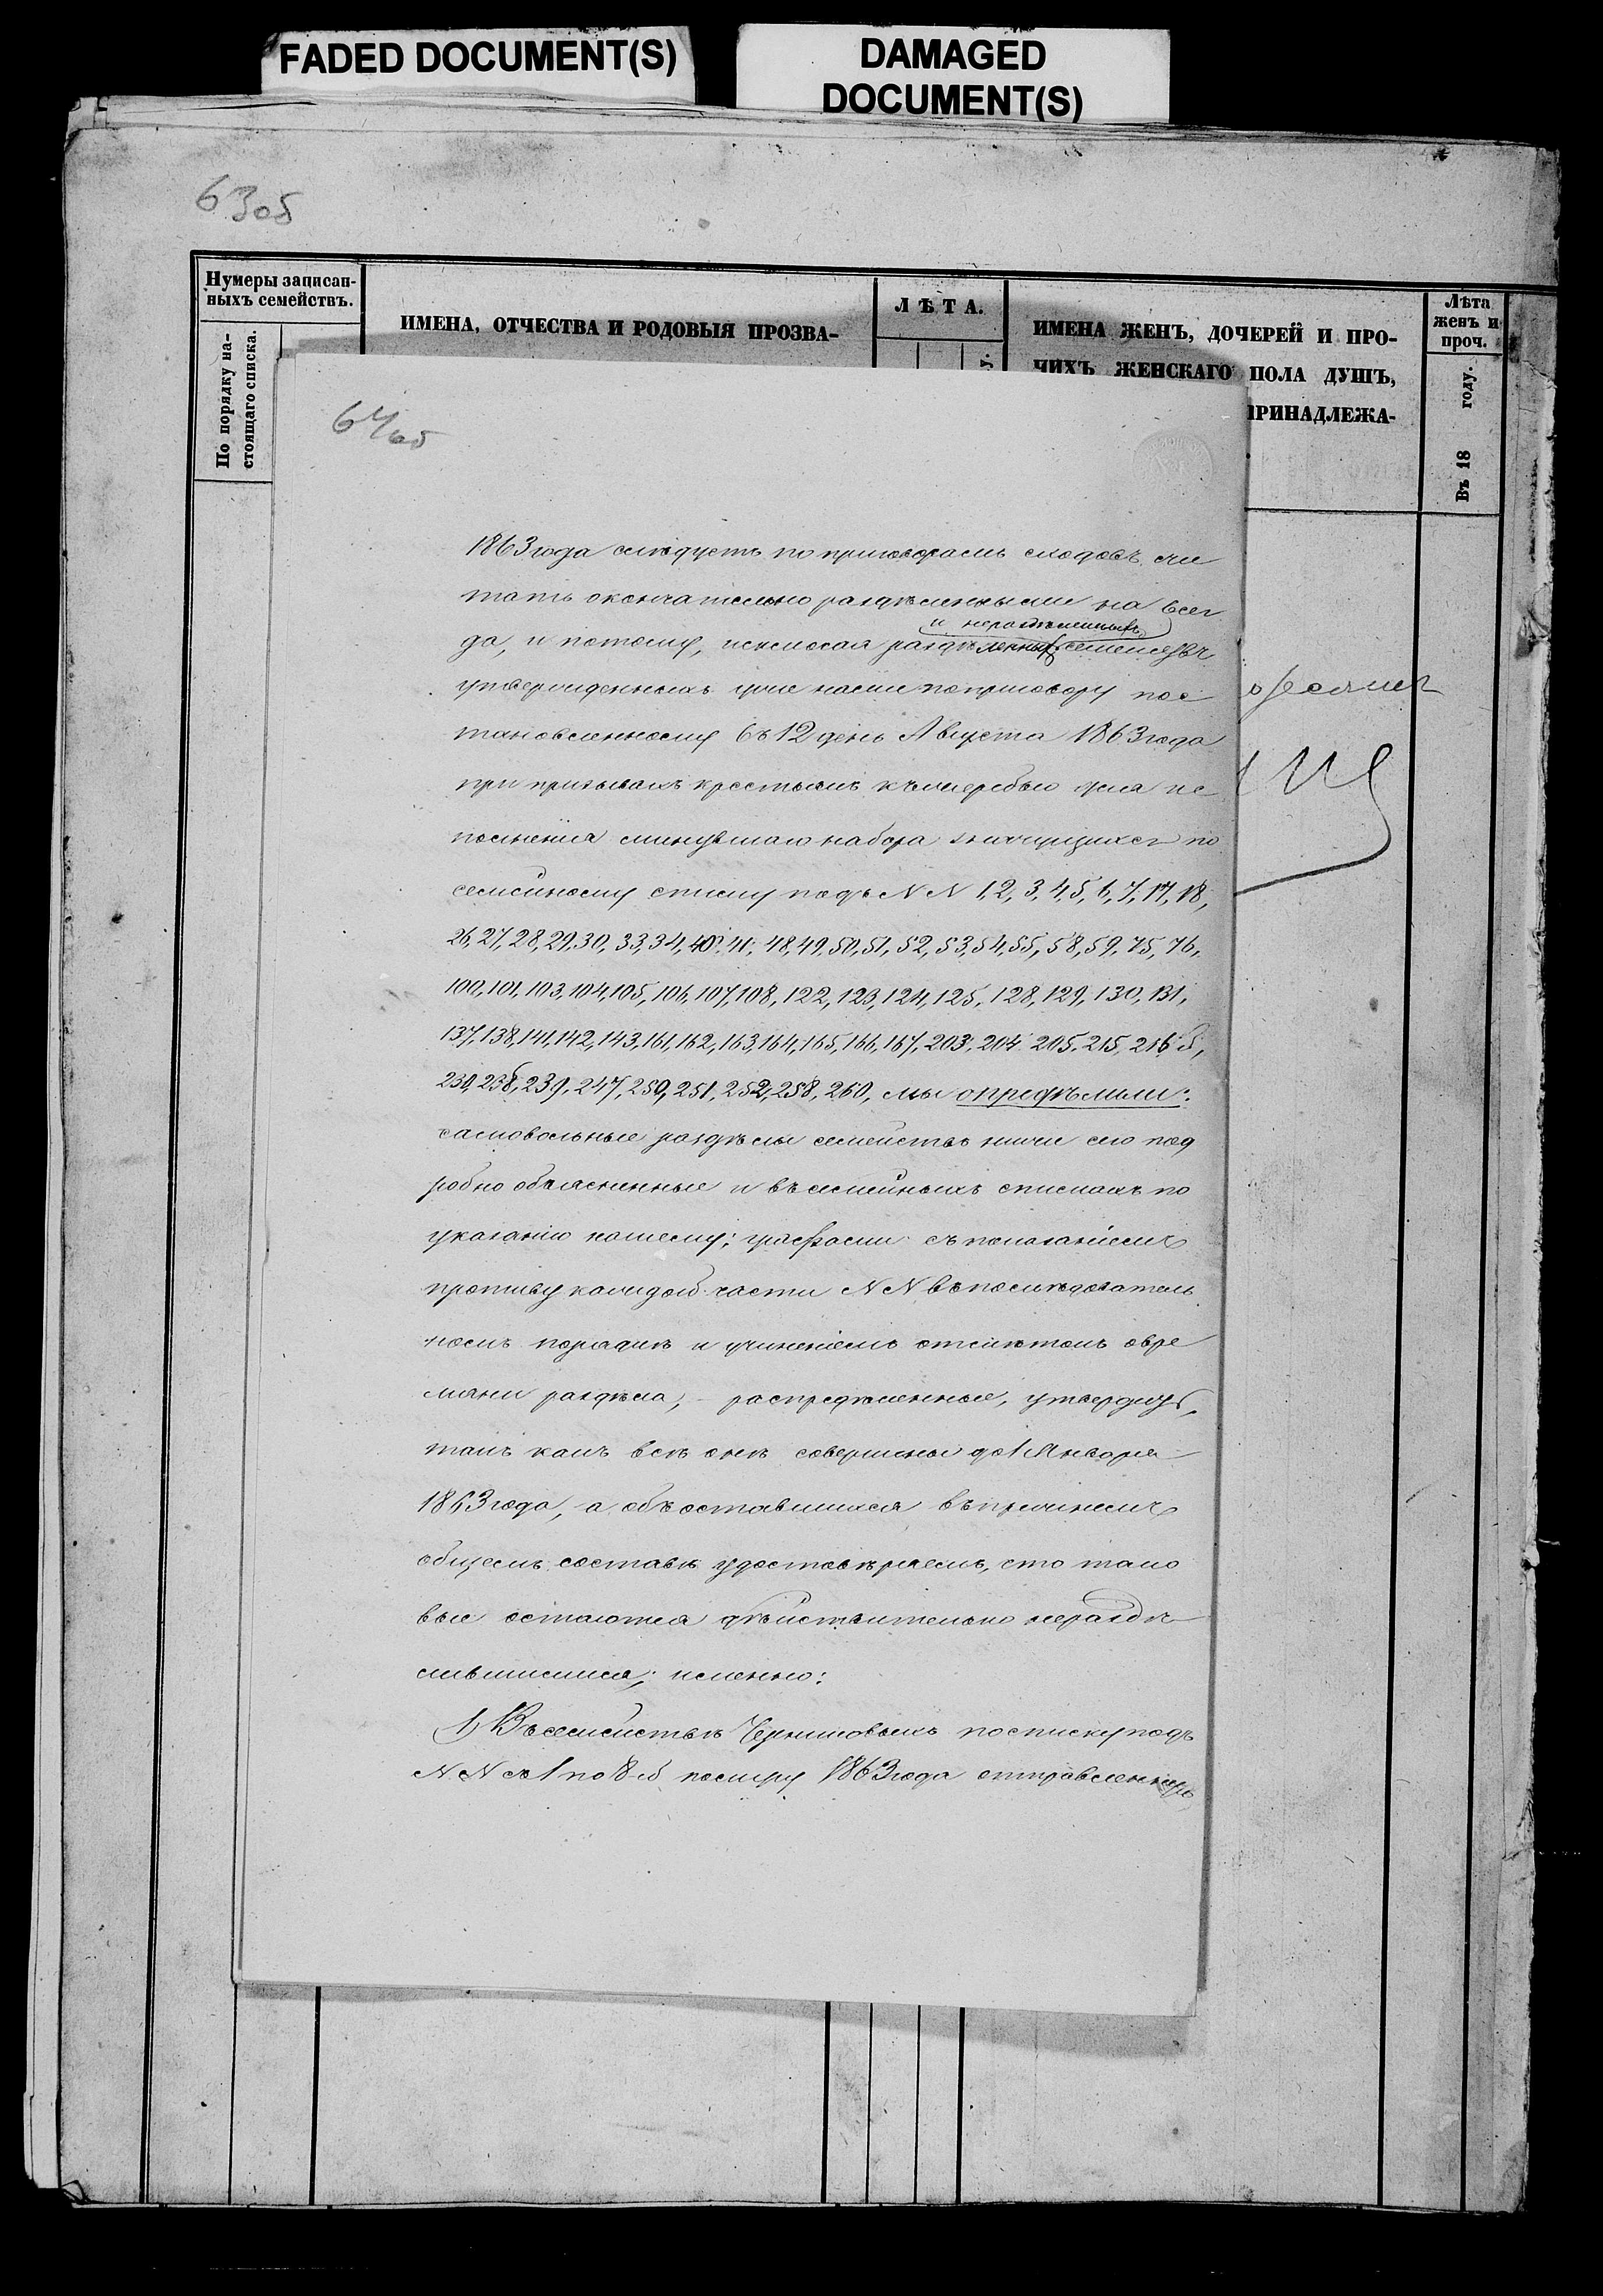 FADED DOCUMENT(S)
DAMAGED
DOCUMENT(S)
63об
Нумеры записан-
ныхъ семействъ.
По порядку на-
стоящаго списка.
ИМЕНА, ОТЧЕСТВА И РОДОВЫЯ ПРОЗВА-
ЛѢТА.
ИМЕНА ЖЕНЪ, ДОЧЕРЕЙ И ПРО-
ЧИХЪ ЖЕНСКАГО ПОЛА ДУШЪ,
ПРИНАДЛЕЖА-
Лѣта
женъ и
проч.
Въ 18 году.
64об
1863 года слѣдуетъ по приговорамъ сходовъ счи
тать окончательно раздѣленными на всег
и нераздѣленныхъ
да, и потому, исключая раздѣленныхъ семействъ
утвержденныхъ уже нами по приговору пос
тановленному въ 12 день Августа 1863 года
при призывахъ крестьянъ къ жеребью для ис
полненія минувшаго набора значущихся по
семейному списку подъ N N 1, 2, 3, 4, 5, 6, 7, 17, 18,
26, 27, 28, 29, 30, 33, 34, 40, 41, 48, 49, 50, 51, 52, 53, 54, 55, 58, 59, 75, 76,
100, 101, 103, 104, 105, 106, 107, 108, 122, 123, 124, 125, 128, 129, 130, 131,
137, 138, 141, 142, 143, 161, 162, 163, 164, 165, 166, 167, 203, 204, 205, 215, 216
238, 239, 247, 250, 251, 252, 258, 260, мы опредѣлили:
самовольные раздѣлы семействъ ниже сего под
робно объясненные и въ семейныхъ спискахъ по
указанію нашему, графами съ показаніемъ
противу каждой части N N въ послѣдователь
номъ порядкѣ и учиненіемъ отмѣтокъ о вре
мяни раздѣла, - распредѣленные, утвердить,
такъ какъ всѣ онѣ совершены до 1 Января
1863 года, а объ оставшихся въ прежнемъ
общемъ составѣ удостовѣряемъ, что тако
вые остаются дѣйствительно нераздѣ
лившимися, именно:
1) Въ семействѣ по списку подъ
N N съ 1 по 8-й къ миру 1863 года